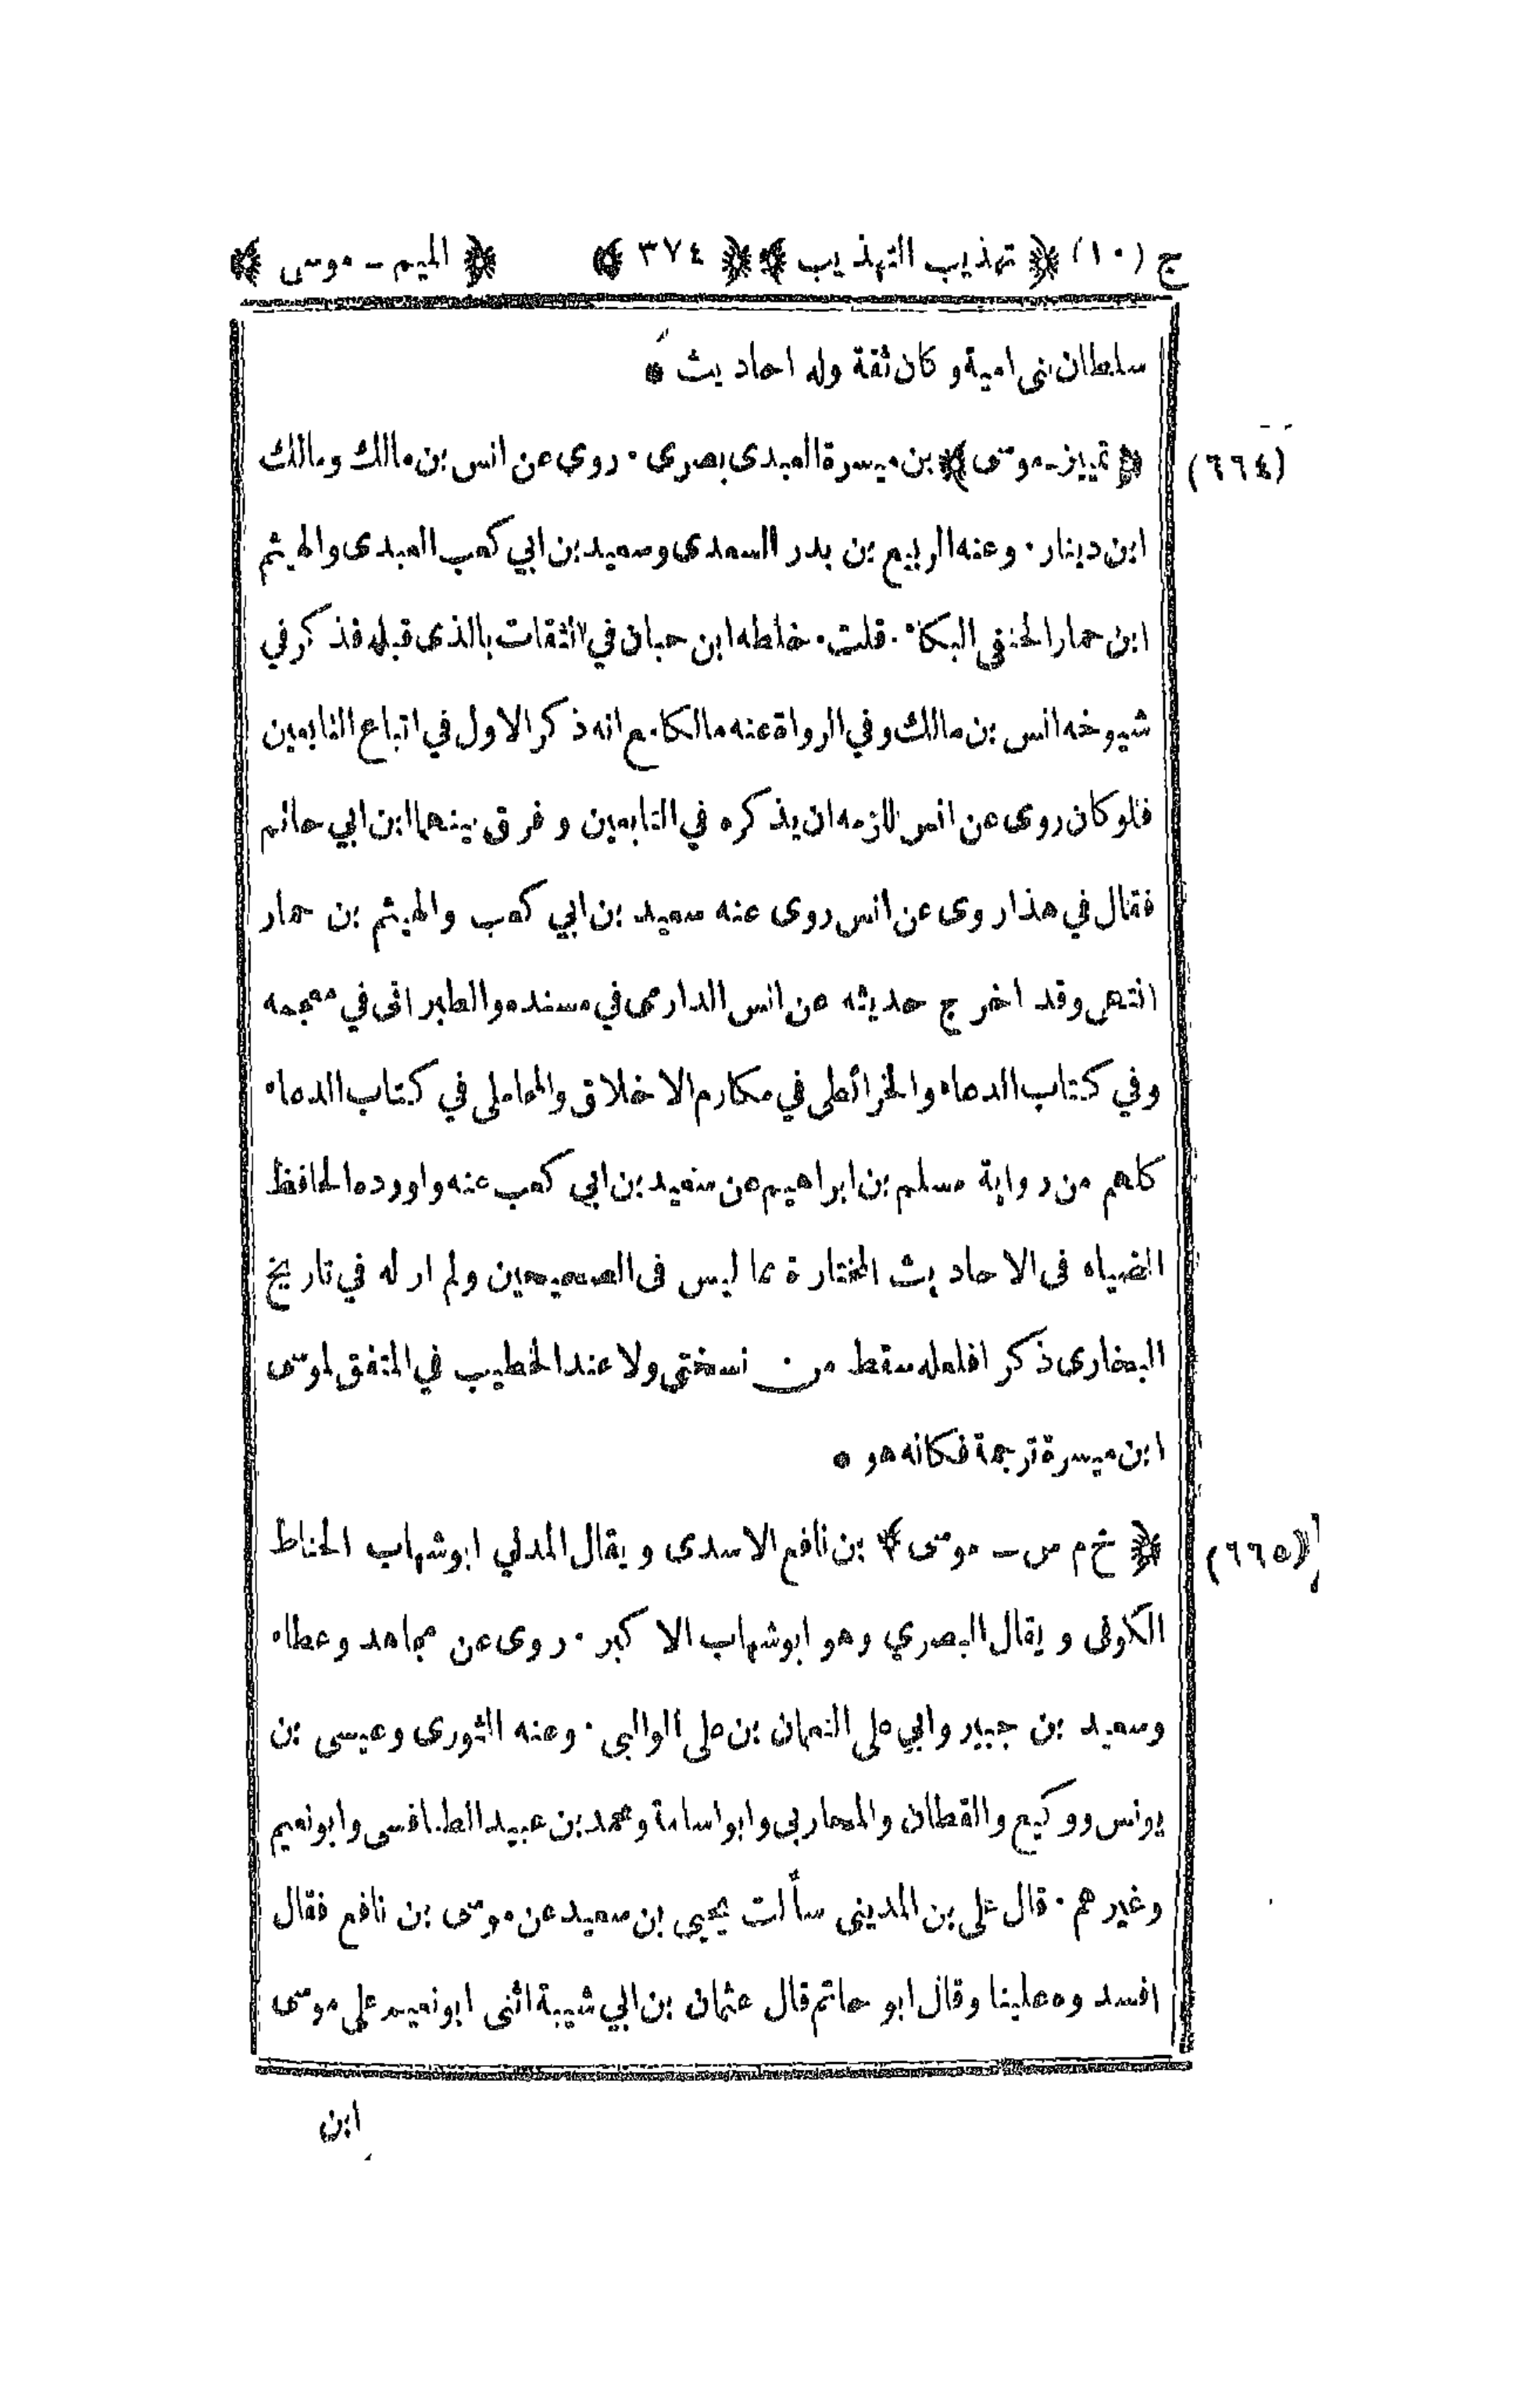 ج (١٠) ﴿ تهذيب التهذيب ﴾ ﴿ ٣٧٤ ﴾ ﴿ الميم ـ موسى ﴾
سلطان بنى امية وكان ثقة وله احاديث *
(٦٦٤) ﴿ تمييز ـ موسى ﴾ بن ميسرة العبدى بصرى · روى عن انس بن مالك ومالك
ابن دينار · وعنه الربيع بن بدر السعدى وسعيد بن ابي كعب العبدى والهيثم
ابن حمار الحنفى البكاء · قلت · خلطه ابن حبان في الثقات بالذى قبله فذكر في
شيوخه انس بن مالك وفي الرواة عنه مالكا مع انه ذكر الاول في اتباع التابعين
فلو كان روى عن انس للزمه ان يذكره في التابعين و فرق بينهما ابن ابي حاتم
فقال في هذا روى عن انس روى عنه سعيد بن ابي كعب والهيثم بن حمار
انتهى وقد اخرج حديثه عن انس الدارمى في مسنده والطبرانى في معجمه
وفي كتاب الدعاء والخرائطى في مكارم الاخلاق والمحاملى في كتاب الدعاء
كلهم من رواية مسلم بن ابراهيم عن سعيد بن ابي كعب عنه واورده الحافظ
الضياء فى الاحاديث المختارة مما ليس فى الصحيحين ولم ار له في تاريخ
البخارى ذكرا فلعله سقط من نسختى ولا عند الخطيب في المتفق لموسى
ابن ميسرة ترجمة فكانه هو *
(٦٦٥) ﴿ خ م س ـ موسى ﴾ بن نافع الاسدى ويقال الهذلي ابو شهاب الحناط
الكوفى ويقال البصري وهو ابو شهاب الاكبر · روى عن مجاهد وعطاء
وسعيد بن جبير وابي على النعمان بن على الوالبى · وعنه الثورى وعيسى بن
يونس ووكيع والقطان والمحاربى وابو اسامة ومحمد بن عبيد الطنافسى وابو نعيم
وغيرهم · قال على بن المدينى سألت يحيى بن سعيد عن موسى بن نافع فقال
افسدوه علينا وقال ابو حاتم قال عثمان بن ابي شيبة اثنى ابو نعيم على موسى
ابن